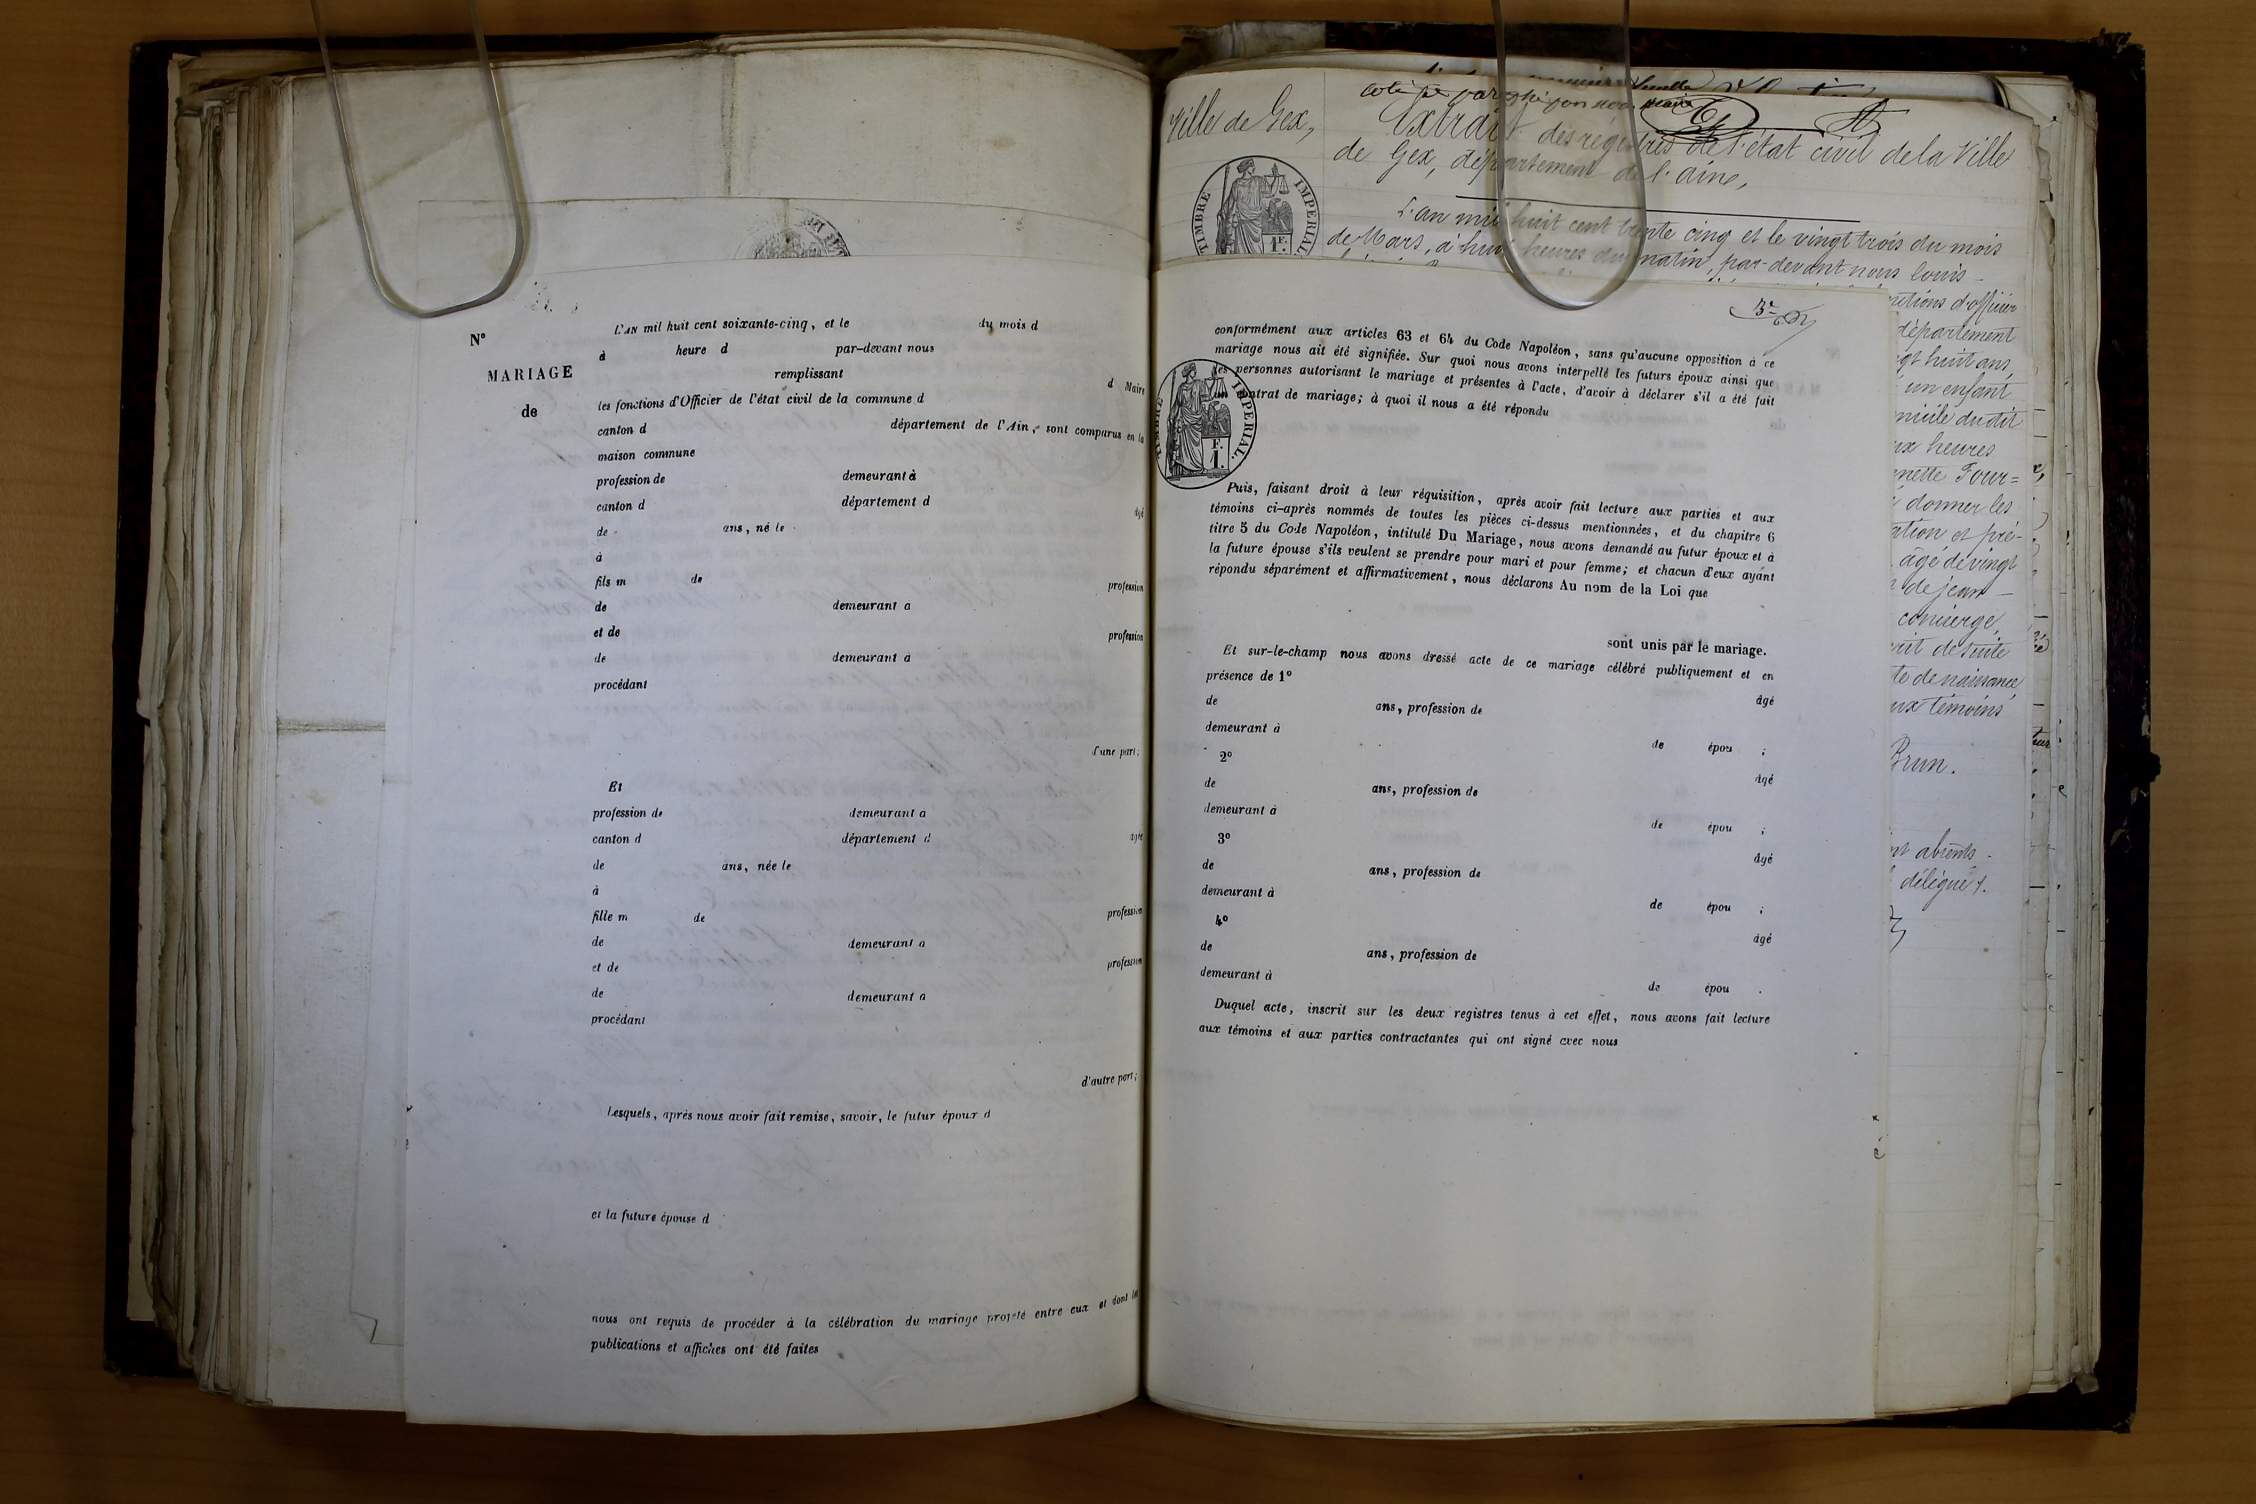 N°
MARIAGE
de
L'AN mil huit cent soixante-cinq, et le du mois d
à heure d par-devant nous
remplissant d Maire
les fonctions d'Officier de l'état civil de la commune d
canton d département de l'Ain, sont comparus en la
maison commune
profession de demeurant à
canton d département d âgé
de ans, né le
à
fils m de profession
de demeurant à
et de profession
de demeurant à
procédant
d'une part;
Et
profession de demeurant à
canton d département d âgée
de ans, née le
à
fille m de profession
de demeurant à
et de profession
de demeurant à
procédant
d'autre part;
Lesquels, après nous avoir fait remise, savoir, le futur époux d
et la future épouse d
nous ont requis de procéder à la célébration du mariage projeté entre eux et dont les
publications et affiches ont été faites
Ville de Gex,
Extrait des régistres de l'état civil de la Ville
de Gex, département de l'ain,
TIMBRE IMPERIAL
1 F.
L'an mil huit cent trente cinq et le vingt trois du mois
de Mars, à huit heures du matin, par-devant nous louis
d'officier
département
huit ans
un enfant
domicile dudit
heures
donner les
âgé de vingt
de jean
concierge,
de suite
de naissance
témoins
Brun.
absents
délégué
3e
conformément aux articles 63 et 64 du Code Napoléon, sans qu'aucune opposition à ce
mariage nous ait été signifiée. Sur quoi nous avons interpellé les futurs époux ainsi que
les personnes autorisant le mariage et présentes à l'acte, d'avoir à déclarer s'il a été fait
contrat de mariage; à quoi il nous a été répondu
TIMBRE IMPERIAL.
F.
1.
Puis, faisant droit à leur réquisition, après avoir fait lecture aux parties et aux
témoins ci-après nommés de toutes les pièces ci-dessus mentionnées, et du chapitre 6
titre 5 du Code Napoléon, intitulé Du Mariage, nous avons demandé au futur époux et à
la future épouse s'ils veulent se prendre pour mari et pour femme; et chacun d'eux ayant
répondu séparément et affirmativement, nous déclarons Au nom de la Loi que
sont unis par le mariage.
Et sur-le-champ nous avons dressé acte de ce mariage célébré publiquement et en
présence de 1°
de ans, profession de âgé
demeurant à de épou ;
2° âgé
de ans, profession de
demeurant à de épou ;
3° âgé
de ans, profession de
demeurant à de épou ;
4° âgé
de ans, profession de
demeurant à de épou .
Duquel acte, inscrit sur les deux registres tenus à cet effet, nous avons fait lecture
aux témoins et aux parties contractantes qui ont signé avec nous